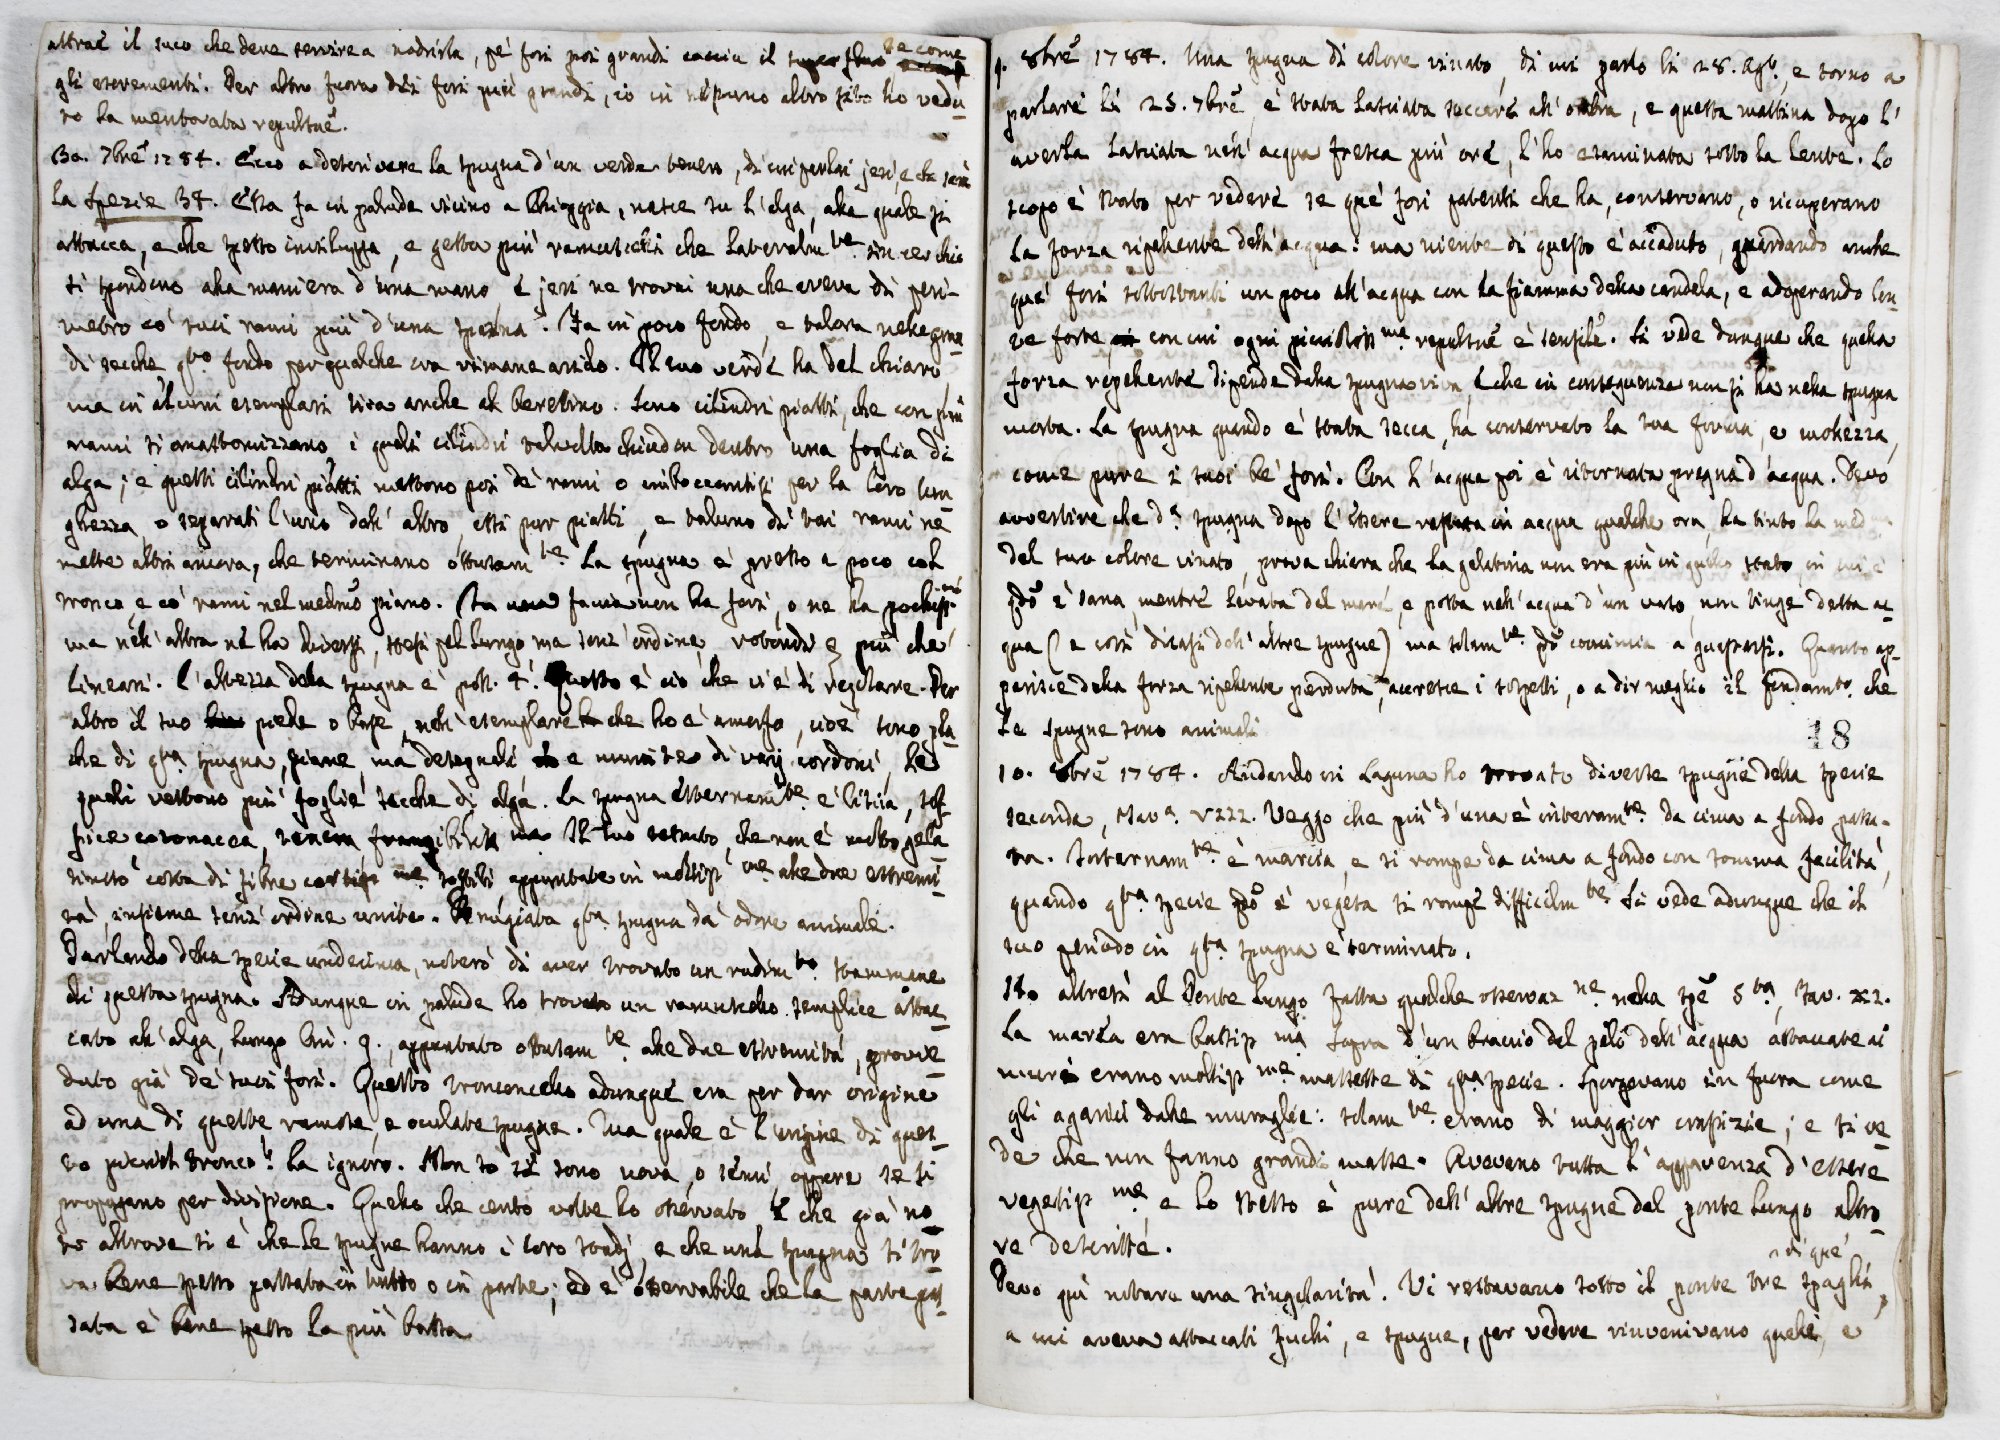 attrae il suco che deve servire a nodrirla, pe' fori poi grandi caccia il superfluo se come
gli escrementi. Per altro fuora dei fori più grandi, io in nessuno altro sito ho vedu-
to la mentovata repulsne.
30. 7bre 1784. Ecco a descrivere la spugna d'un verde tenero, di cui parlai jeri, e che sarà
la spezie 34. Essa fa in palude vicino a Chioggia, nasce su l'alga, alla quale si
attacca, e che spesso inviluppa, e getta più ramuscelli che lateralmte in cerchio
si spandono alla maniera d'una mano, e jeri ne trovai una che aveva di peri-
metro co' suoi rami più d'una spanna. Fa in poco fondo, e talora nelle gran-
di secche qto fondo per qualche ora rimane arido. Il suo verde ha del chiaro,
ma in alcuni esemplari tira anche al beretino. Sono cilindri piatti, che con più
rami si anastomizzano, i quali cilindri talvolta chiudon dentro una foglia di
alga; e questi cilindri piatti mettono poi de' rami o imboccantisi per la loro lun-
ghezza, o separati l'uno dall'altro, essi pur piatti, e taluno di tai rami ne
mette altri ancora, che terminano ottusamte. La spugna è presso a poco col
tronco e co' rami nel medmo piano. In una faccia non ha fori, o ne ha pochissmi
ma nell'altra ne ha diversi, stesi pel lungo ma senz'ordine, rotondi e più che
lineari. L'altezza della spugna è poll. 4. Questo è ciò che v'è di regolare. Per
altro il suo piede o base, nell'esemplare che ho è amorfo, cioè sono pla-
che di qsta spugna, piane, ma disegnali e munite di varj cordoni, le
quali vestono più foglie secche di alga. La spugna esternamte è liscia, sof-
fice coronacea, tenera frangibilissma. Il suo tessuto, che non è molto gela-
tinoso costa di fibre cortissme sottili appuntate in moltissme alle due estremi-
tà, insieme senz'ordine unite. Brugiata qsta spugna dà odore animale.
Parlando della specie undecima, noterò di aver trovato un rudimto stammane
di questa spugna. Adunque in palude ho trovato un ramuscello semplice attac-
cato all'alga, lungo lin. 9., appuntato ottusamte alle due estremità, provve-
duto già de' suoi fori. Questo tronconcello adunque era per dar origine
ad una di queste ramose, e oculate spugne. Ma quale è l'origine di ques-
to picciol tronco? La ignoro. Non so se sono uova, o semi, oppure se si
propagano per divisione. Quello che cento volte ho osservato, e che già no-
to altrove si è che le spugne hanno i loro stadj, e che una spugna si tro-
va bene spesso passata in tutto o in parte; ed è osservabile che la parte pas-
sata è bene spesso la più bassa.
9. 8bre 1784. Una spugna di colore vinato, di cui parlo li 28. Agto, e torno a
parlare li 25. 7bre, è stata lasciata seccare all'ombra, e questa mattina dopo l'
averla lasciata nell'acqua fresca più ore, l'ho esaminata sotto la lente. Lo
scopo è stato per vedere se que' fori patenti che ha, conservano, o ricuperano
la forza ripellente dell'acqua: ma niente di questo è accaduto, guardando anche
que' fori sottostanti un poco all'acqua con la fiamma della candela, e adoperando len-
te forte, con cui ogni picciolissma repulsne è sensibile. Si vede dunque che quella
forza repellente dipende dalla spugna viva, e che in conseguenza non si ha nella spugna
morta. La spugna quando è stata secca, ha conservato la sua forma, e mollezza,
come pure i suoi be' fori. Con l'acqua poi è ritornata pregna d'acqua. Devo
avvertire che da spugna dopo l'essere restata in acqua qualche ora, ha tinto la medma
del suo colore vinato, prova chiara che la gelatina non era più in quello stato, in cui è
qdo è sana, mentre levata dal mare, e posta nell'acqua d'un vaso, non tinge detta ac-
qua (e così dicasi dell'altre spugne) ma solamte qdo comincia a guastarsi. Quanto ap-
parisce della forza ripellente perduta, accresce i sospetti, o a dir meglio il fondamto, che
le spugne sono animali.
18
10. 8bre 1784. Andando in Laguna ho trovato diverse spugne della specie
seconda, Tava. VIII. Veggo che più d'una è interamte da cima a fondo passa-
ta. Internamte è marcia, e si rompe da cima a fondo con somma facilità,
quando qsta specie qdo è vegeta si rompe difficilmte. Si vede adunque che il
suo periodo in qsta spugna è terminato.
Ito altresì al Ponte Lungo fatta qualche osservazne nella spe 5ta, Tav. XI.
La marea era bassissma. Sopra d'un braccio del pelo dell'acqua attaccate ai
muri erano moltissme masse di qsta specie. Sporgevano in fuora come
gli agarici dalle muraglie: solamte erano di maggior crassizie; e si ve-
de che non fanno grandi masse. Avevano tutta l'apparenza d'essere
vegetissme, e lo stesso è pure dell'altre spugne del ponte lungo altro-
ve descritte.
Devo quì notare una singolarità. Vi restavano sotto il ponte tre di que' spaghi,
a cui aveva attaccati fuchi, e spugne, per vedere rinvenivano quelli, e